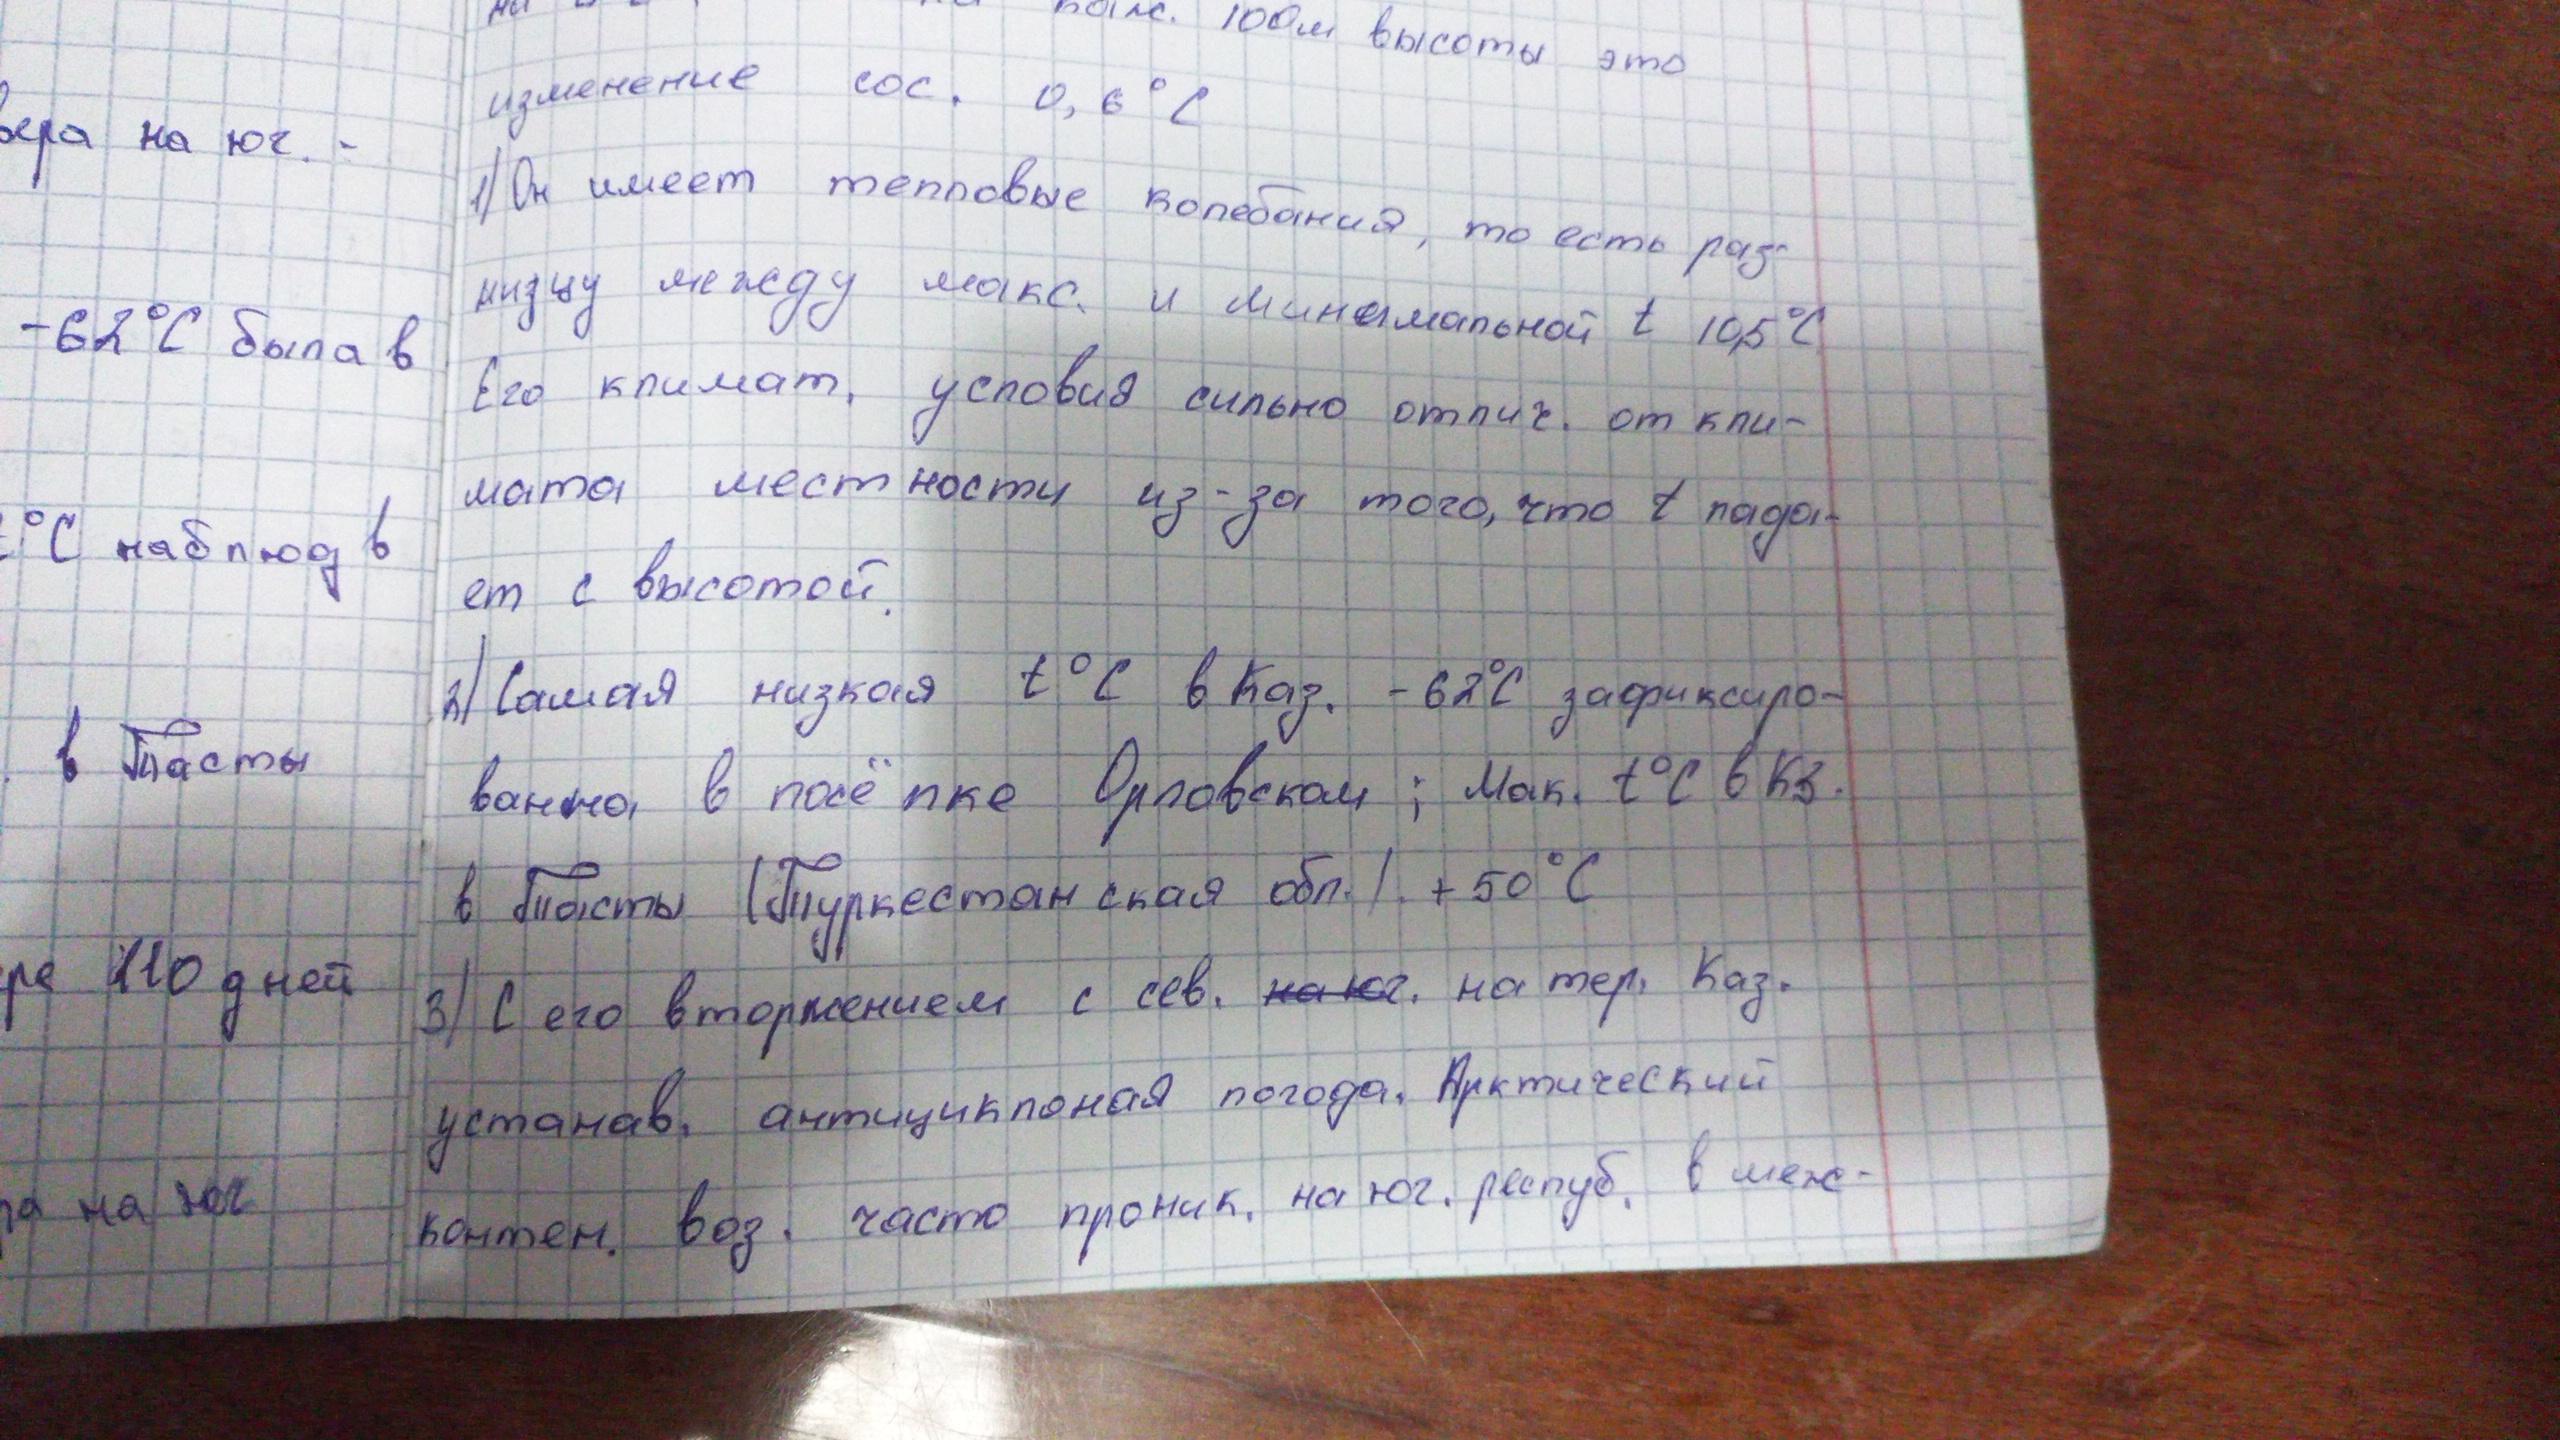 вера на юг. -
-62°С была в
°С наблюд в
в Тасты
ре 110 дней
на юг
на каж. 100м высоты это
изменение сос. 0,6°С
1) Он имеет тепловые колебания, то есть раз-
низцу между макс. и минимальной t 10,5°С
Его климат. условия сильно отлич. от кли-
мата местности из-за того, что t пада-
ет с высотой.
2) Самая низкая t°С в Каз. -62°С зафиксиро-
ванна в посёлке Орловском; Мак. t°С в КЗ.
в Тасты (Туркестанская обл.). +50°С
3) С его вторжением с сев. на юг. на тер. Каз.
устанав. антициклоная погода. Арктический
контен. воз. часто проник. на юг. респуб. в меж-